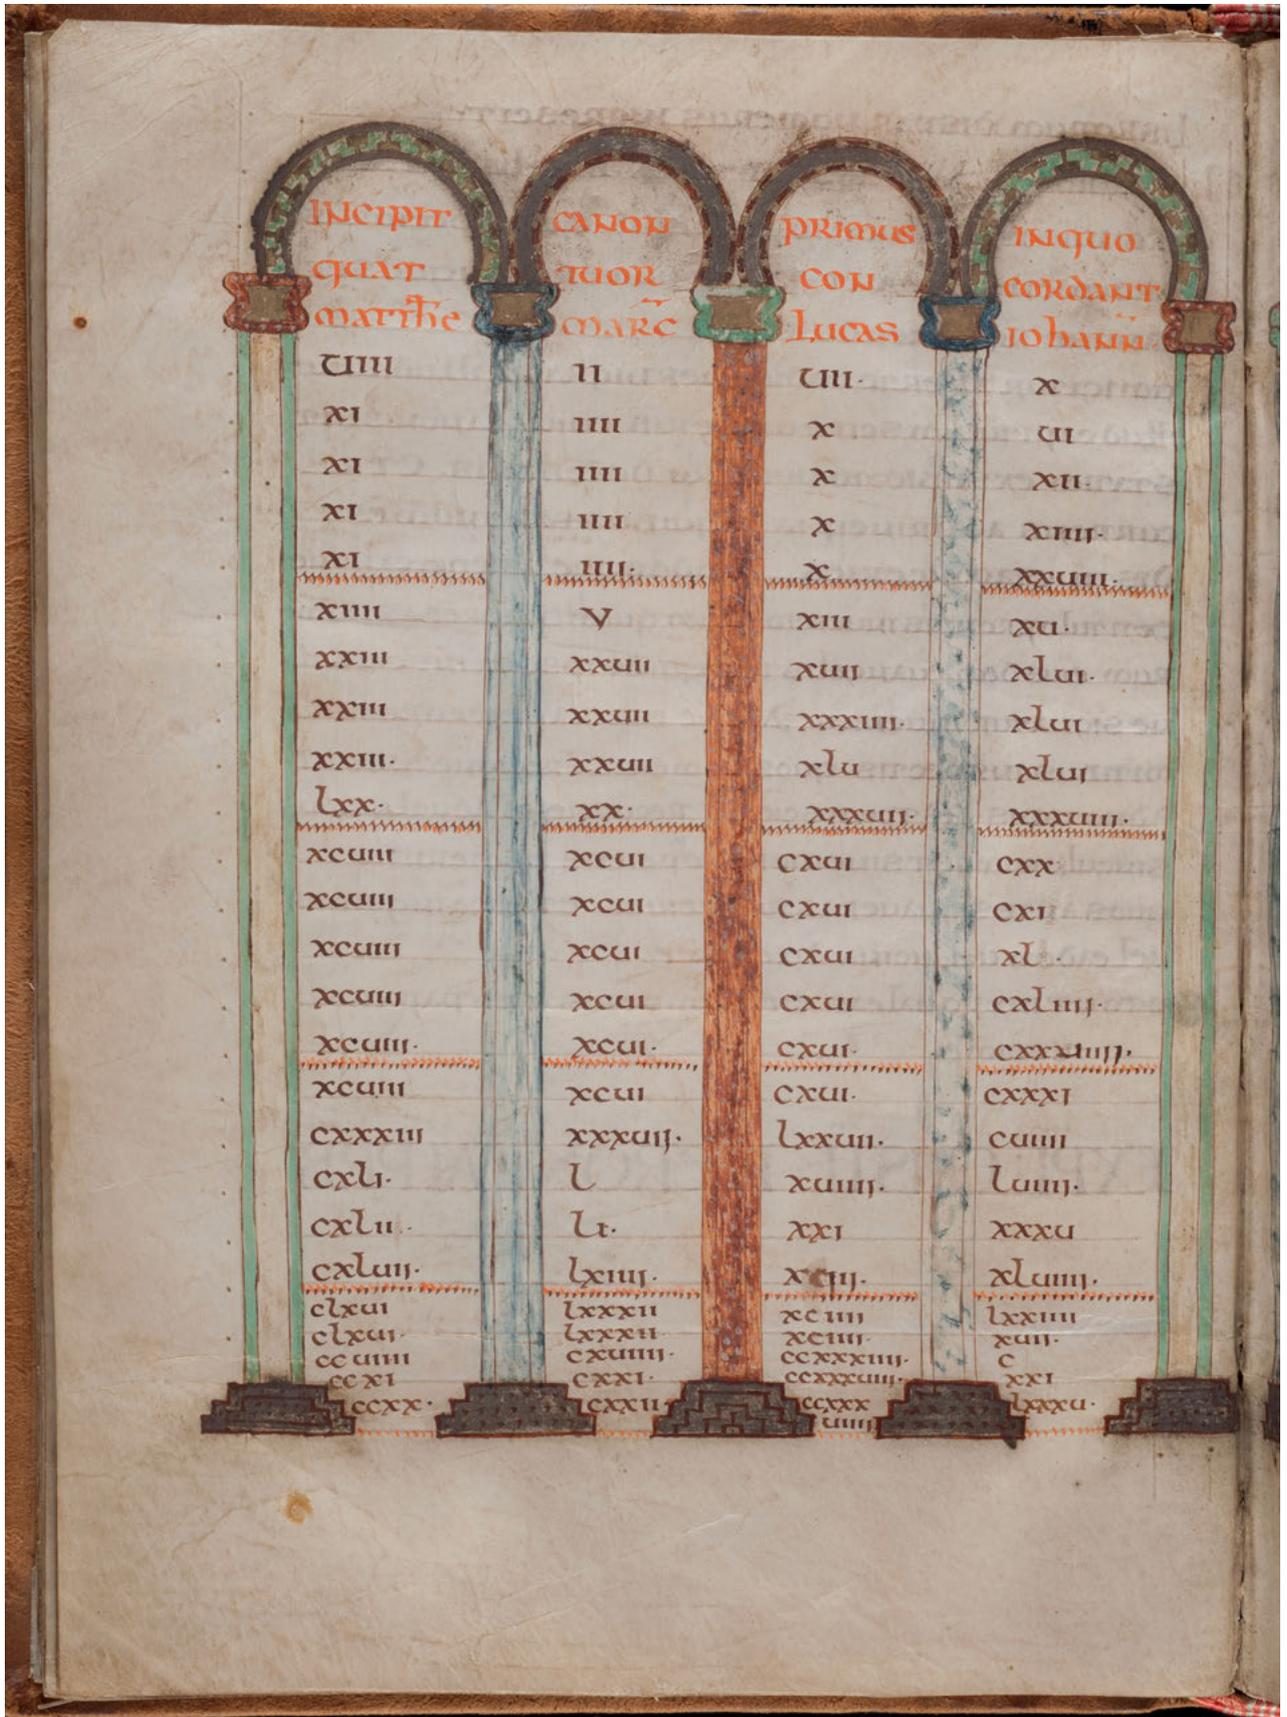 INCIPIT CANON PRIMUS INQUO
QUAT TUOR CON CORDANT
MATTHE MARC LUCAS IOHANN
UIIII II UIII· X
XI IIII X UI
XI IIII X XII·
XI IIII X XIIII·
XI IIII· X XXUIII·
XIIII V XIII XU·
XXIII XXUII XUII XLUI·
XXIII XXUII XXXIIII· XLUI
XXIII· XXUII XLU XLUI
LXX· XX· XXXUII· XXXUIII·
XCUIII XCUI CXUI CXX
XCUIII XCUI CXUI CXI
XCUIII XCUI CXUI XL·
XCUIII XCUI CXUI CXLIIII·
XCUIII· XCUI· CXUI·
XCUIII XCUI CXUI· CXXXI
CXXXIII XXXUII· LXXUII· CUIIII
CXLI· L XUIIII· LUIIII·
CXLII· LI· XXI XXXU
CXLUII· LXIIII· XLUIIII·
CLXUI LXXXII XCIIII LXXIIII
CLXUI· LXXXII· XCIIII· XUII·
CCUIIII CXUIIII· CCXXXIIII· C
CCXI CXXI· CCXXXUIII· XXI
CCXX· CXXII· CCXXX LXXXU·
UIIII